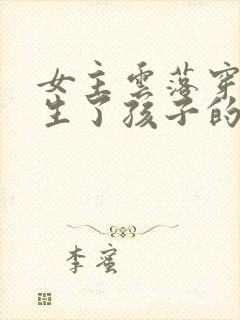 女主雲落穿
生了孩子的
李蜜